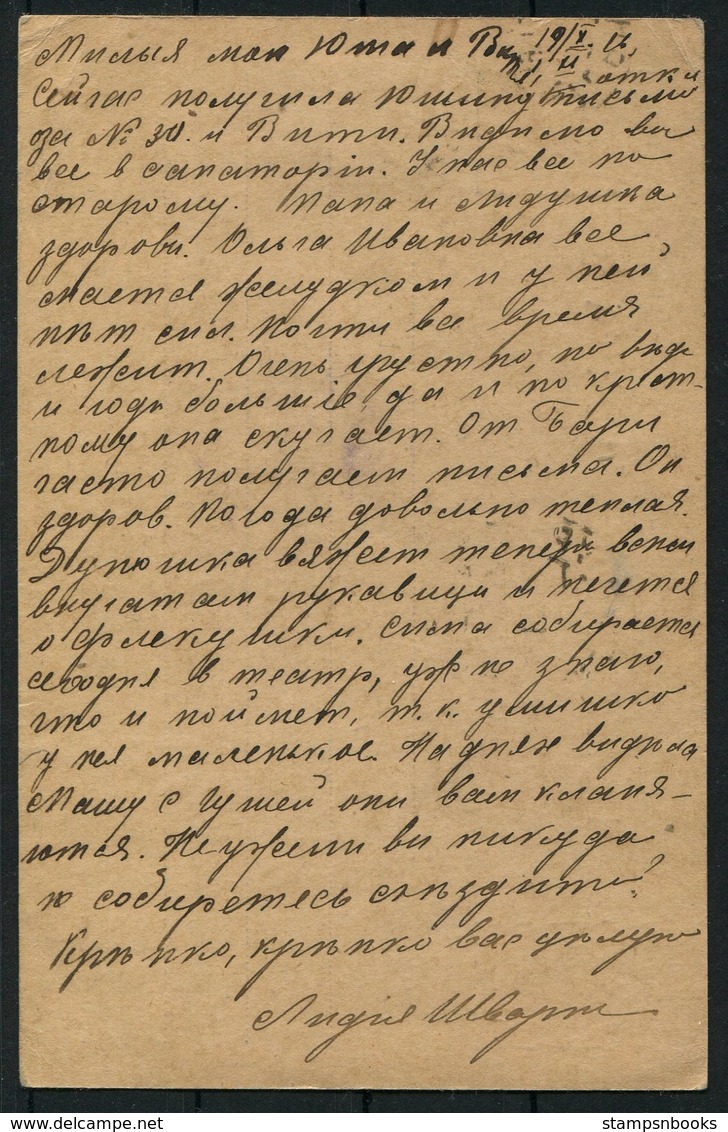 Милыя мои Юта и Ви 19/X. 16,
Сейчас получила Ютину открыт письмо
за № 30. и Вити. Видимо вы
все в санаторіи. У нас все по
старому. Папа и Лидушка
здоровы. Ольга Ивановна все
мается желудком и у ней
нѣт сил. Почти все время
лежит. Очень грустно, но вѣдь
и годы большіе да и по крест-
ному она скучает. От Бори
часто получаем письма. Он
здоров. Погода довольно теплая.
Дунюшка вяжет теперь всѣм
внучатам рукавицы и печется
о Флекушки. Сима собирается
сегодня в театр, уж не знаю,
что и поймет, т. к. умишко
у нея маленькое. На днях видѣла
Машу с Гушей они вам кланя-
ются. Неужели вы никуда
не собиретесь съѣздить?
Крѣпко, крѣпко вас цѣлую
Лидія Шварц
stampsnbooks